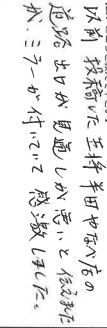 以前 投稿した 王将 半田やなべ店の
道路 出口が 見通しが悪いと 伝えました
が、ミラーが付いていて 感激しました。